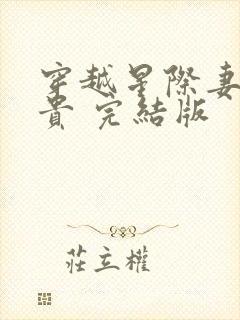 穿越星際妻
貴 完結版
莊立權